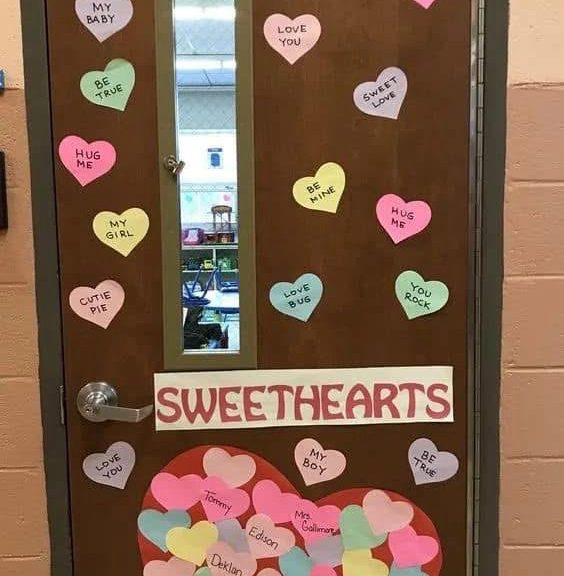 MY
BABY
LOVE
YOU
BE
TRUE
SWEET
LOVE
HUG
ME
BE
MINE
HUG
ME
MY
GIRL
CUTIE
PIE
LOVE
BUG
YOU
ROCK
SWEETHEARTS
LOVE
YOU
MY
BOY
BE
TRUE
Tommy
Mrs.
Gallimore
Edison
Deklan